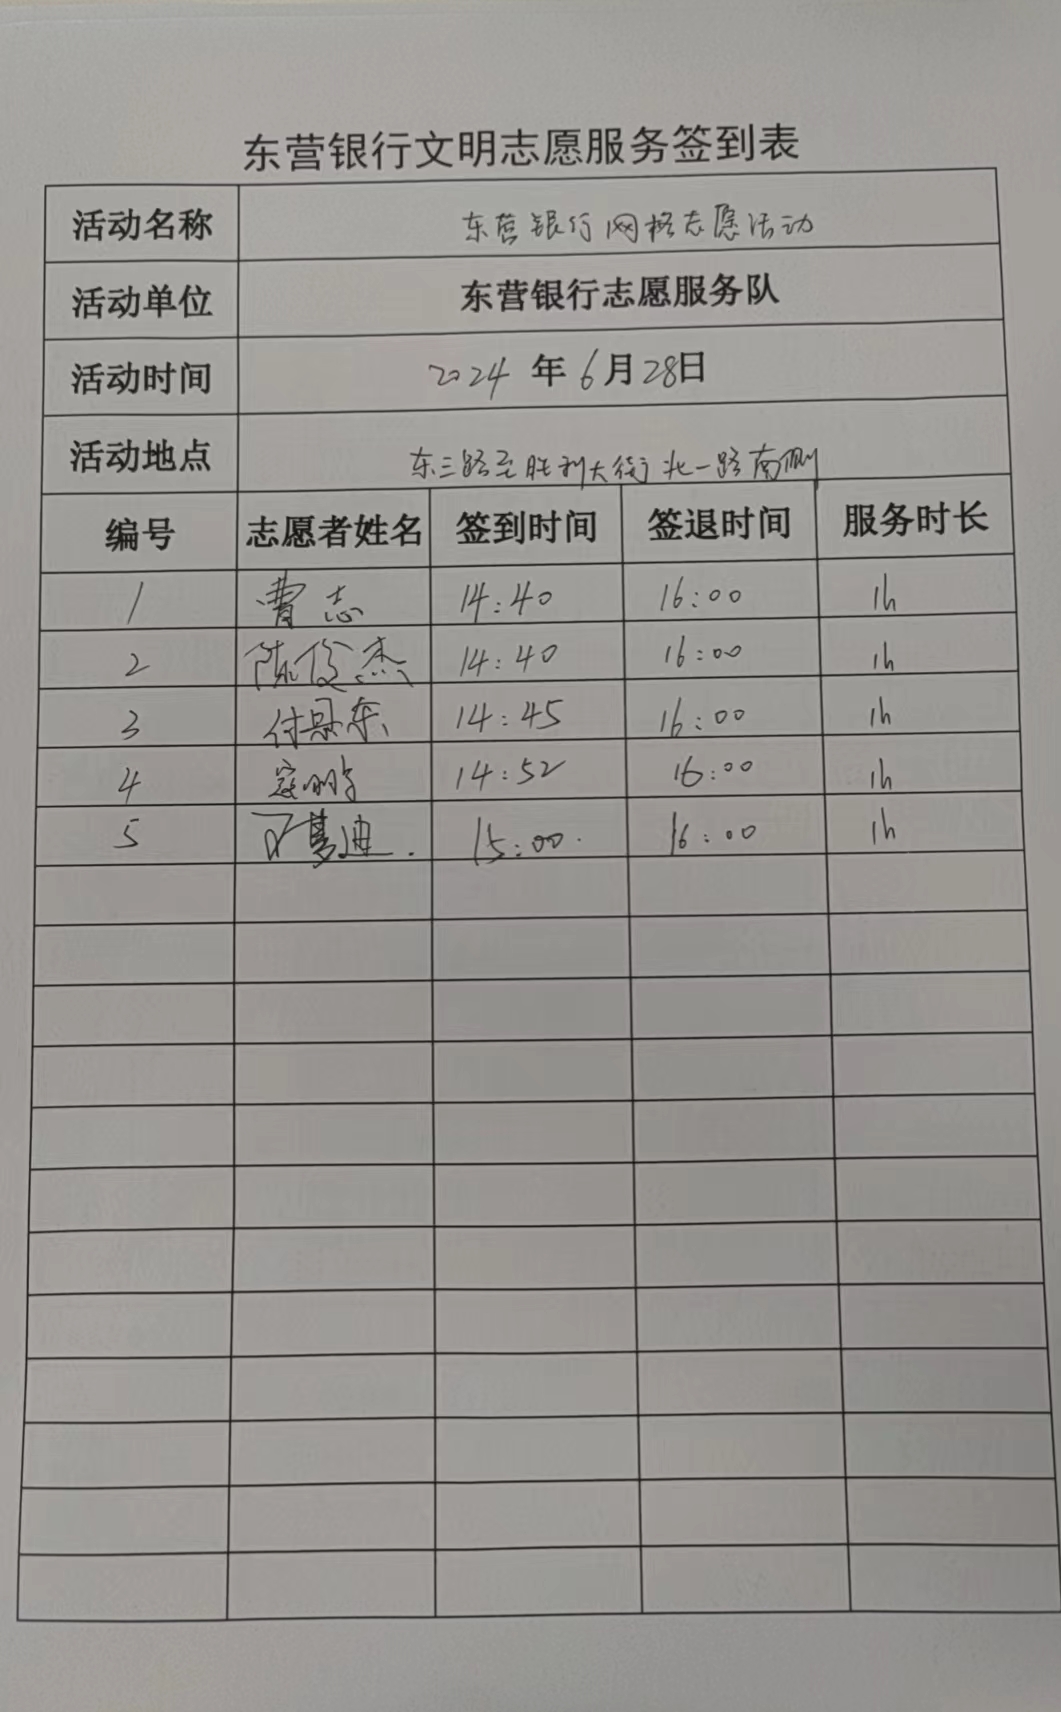 东营银行文明志愿服务签到表
活动名称 东营银行网格志愿活动
活动单位 东营银行志愿服务队
活动时间 2024 年 6月28日
活动地点 东三路至胜利大街北一路南侧
编号 志愿者姓名 签到时间 签退时间 服务时长
1 曹志 14:40 16:00 1h
2 陈俊杰 14:40 16:00 1h
3 付 14:45 16:00 1h
4 14:52 16:00 1h
5 迪 15:00 16:00 1h